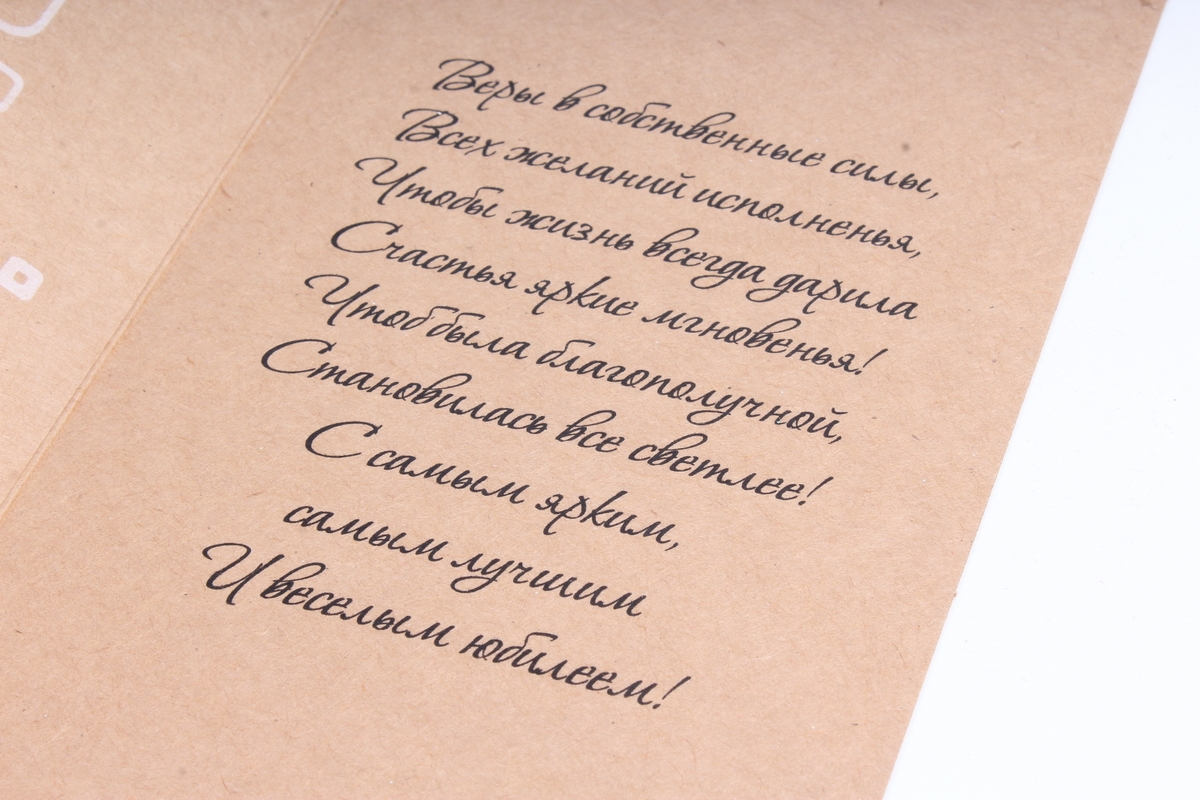 Веры в собственные силы,
Всех желаний исполненья,
Чтобы жизнь всегда дарила
Счастья яркие мгновенья!
Чтоб была благополучной,
Становилась все светлее!
С самым ярким,
самым лучшим
И веселым юбилеем!